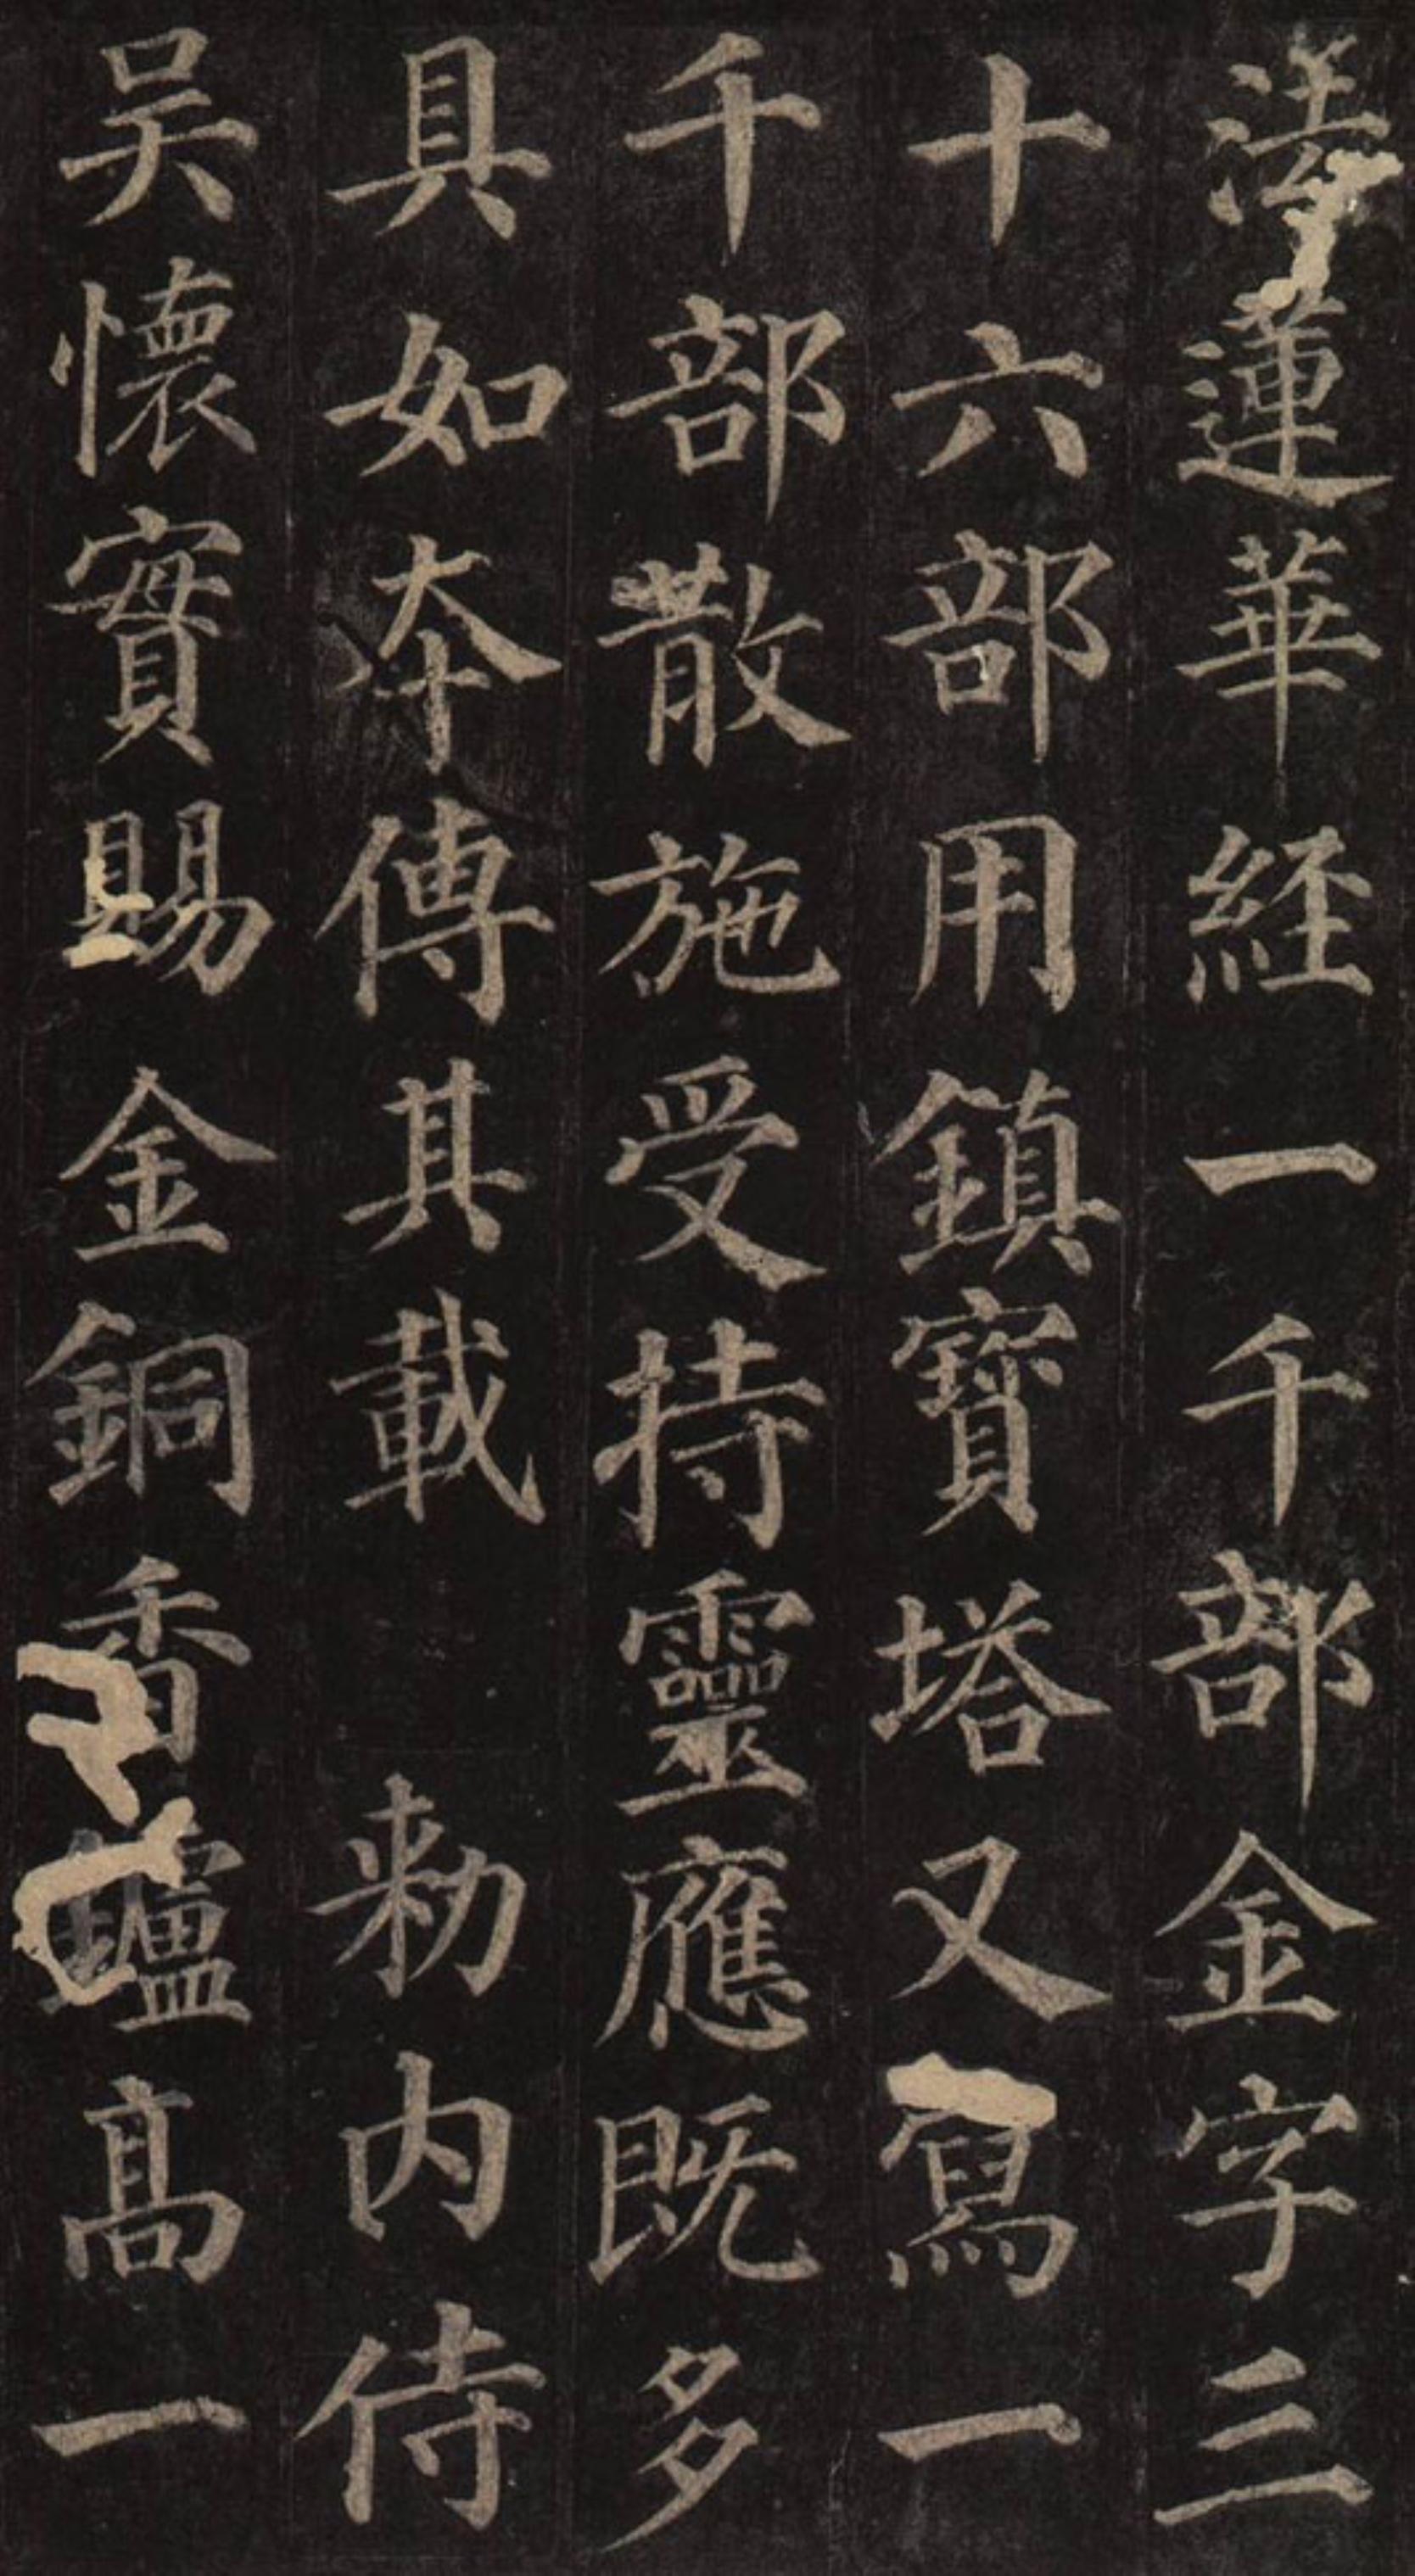 法蓮華經一千部金字三
十六部用鎮寶塔又寫一
千部散施受持靈應既多
具如本傳其載勑內侍
吳懷實賜金銅香爐高一